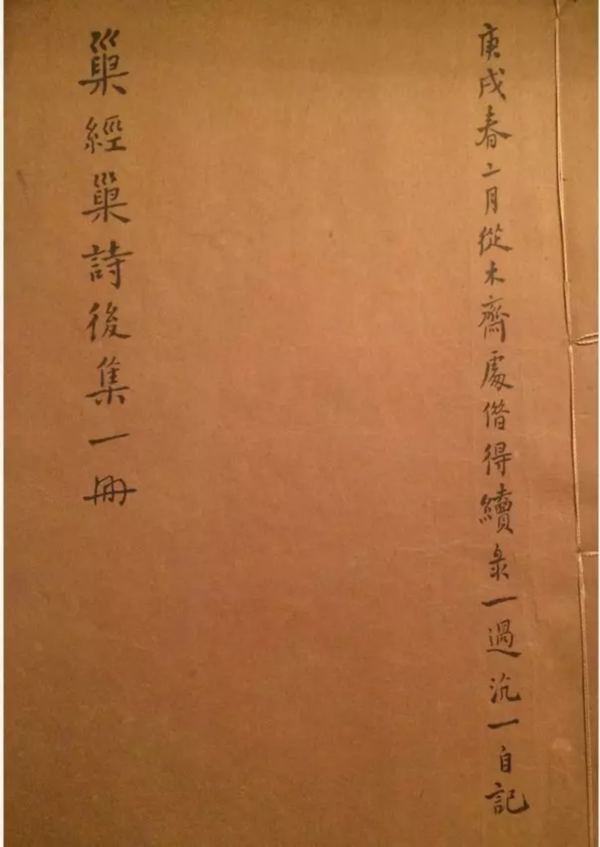 庚戌春二月從木齋處借得續彔一過沆一自記
巢經巢詩後集一冊